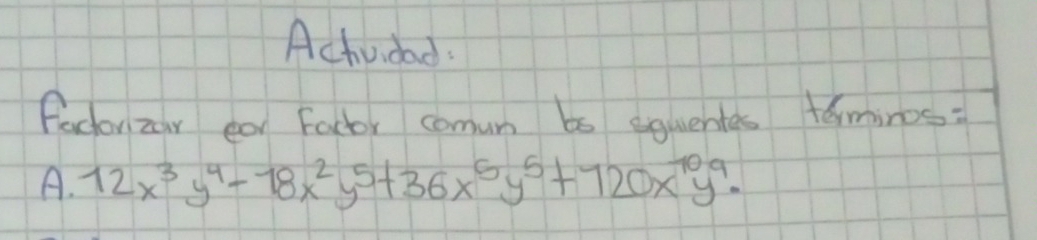 Actividad:
Factorizar por Factor comun los siguientes términos:
A. 12x³y⁴ - 18x²y⁵ + 36x⁵y⁵ + 120x¹⁰y⁹.